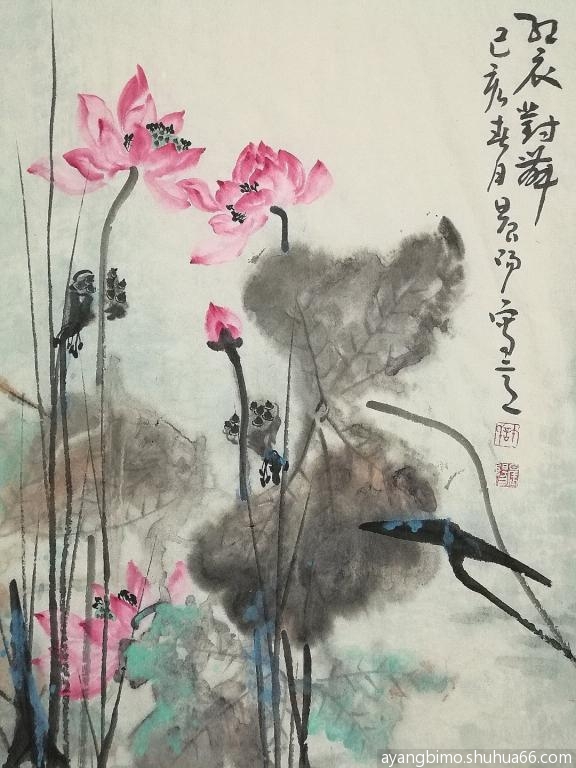 红衣對舞
己亥春月晨阳写意
ayangbimo.shuhua66.com